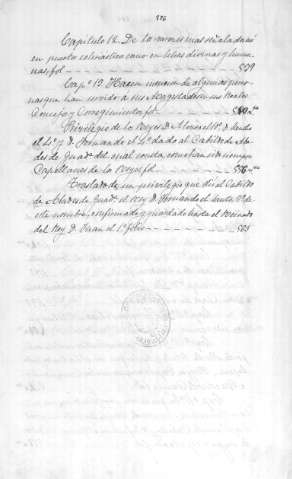 Capitulo 12. De los varones mas señalados
en puesto eclesiastico como en letras divinas y huma-
nas, fol - - - - 529
Cap.º 13. Hacen mencion de algunas perso-
nas que han servido a sus Magestades en sus Reales
Consejos y Corregimientos fol
Privilegio de los Reyes D. Alonso el Sº desde
el 4º y D. Fernando el 4º dado al Cabildo de Aba-
des de Guad. del qual consta como han sido siempre
Capellanes de los Reyes fol - 556
Traslado de un privilegio que dió al Cabildo
de Abades de Guad. el Rey D. Fernando el
de este nombre, confirmado y guardado hasta el Reinado
del Rey D. Juan el 1º folio - - - 565